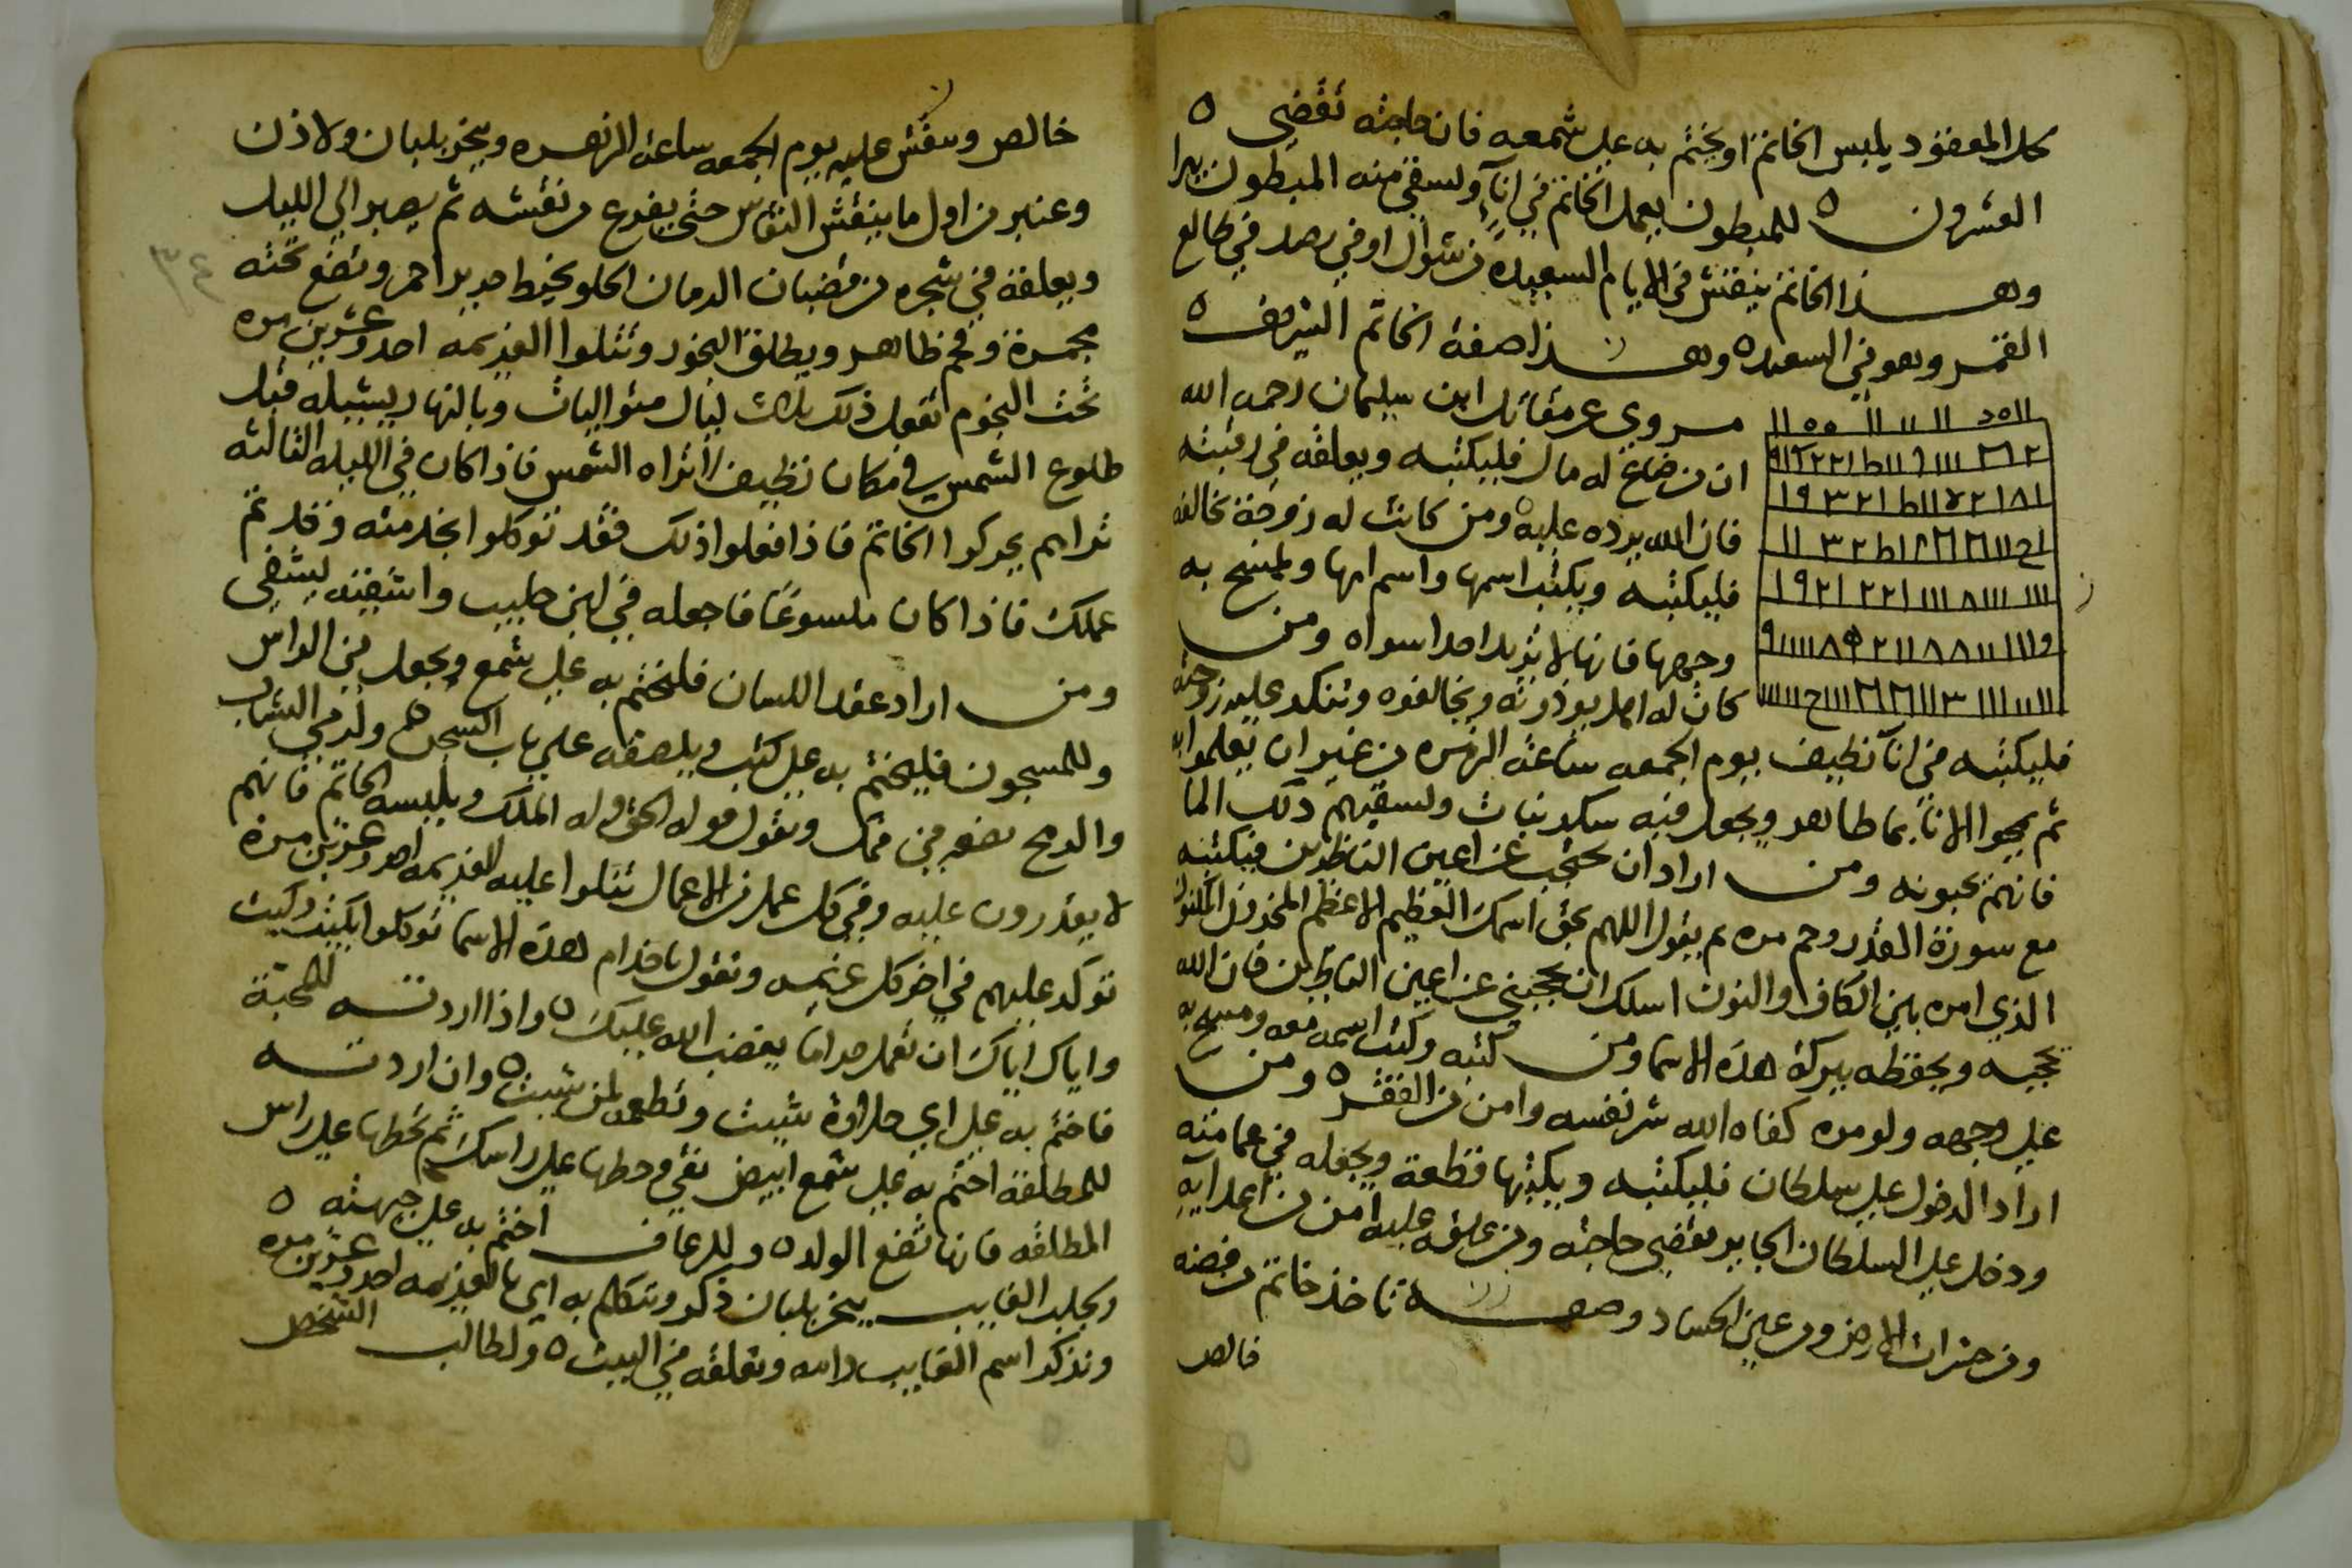 كل المعقود يلبس الخاتم او يختم به على شمعه فان حاجته تقضى ٥
العشرون ٥ للمبطون يعمل الخاتم في انآ ويسقي منه المبطون يبرا
وهــذا الخاتم ينقش في الايام السعيدة من شوال او في رصد في طالع
القمر وهو في السعده ٥ وهــذا صفة الخاتم الشريف ٥
مروي عن مقاتل ابن سليمان رحمه الله
ان من ضاع له مال فليكتبه ويعلقه في رقبته
فان الله يرده عليه ٥ ومن كانت له زوجة تخالفه
فليكتبه ويكتب اسمها واسم امها ويمسح به
وجهها فانها لا تريد احدا سواه ومن
كان له اهل يوذونه ويخالفوه وتنكد عليه زوجته
فليكتبه في انآ نظيف يوم الجمعه ساعة الزهره من غير ان يعلموا به
ثم يمحوا الانآ بما طاهر ويجعل فيه سكر نبات ويسقيهم ذلك الما
فانهم يحبونه ومن اراد ان يحتجب عن اعين الناظرين فيكتبه
مع سورة القدر وحم مره ثم يقول اللهم بحق اسمك العظيم الاعظم المخزون المكنون
الذي امره بين الكاف والنون اسلك ان تحجبني عن اعين الناظرين فان الله
يحجبه ويحفظه ببركة هذه الاسما ومن كتبه وكتب اسمه معه ومسح به
على وجهه ولو مره كفاه الله شر نفسه وامن من الفقر ٥ ومن
اراد الدخول على سلطان فليكتبه ويكتبها قطعة ويجعله في عمامته
ودخل على السلطان الجاير تقضى حاجته ومن علقه عليه امن من اعدايه
ومن حشرات الارض ومن عين الحساد وصفــة تاخذ خاتم من فضه
خالص
خالص وينقش عليه يوم الجمعه ساعة الزهره ويبخر بلبان ولاذن
وعنبر من اول ما ينقش النقاش حتى يفرغ من نقشه ثم يصبر الى الليل
ويعلقه في شجره من قضبان الرمان الحلو بخيط حرير احمر وتضع تحته
مجمرة وفحم طاهر ويطلق البخور وتتلوا العزيمه احد وعشرين مره
تحت النجوم تفعل ذلك ثلاث ليال متواليات وبالنهار يشيله قبل
طلوع الشمس في مكان نظيف لا تراه الشمس فاذا كان في الليله الثالثه
تراهم يحركوا الخاتم فاذا فعلوا ذلك فقد توكلوا بخدمته وقد تم
عملك فاذا كان ملسوعًا فاجعله في لبن حليب واسقيه ليشفى
ومن اراد عقد اللسان فليختم به على شمع ويجعل في الراس
وللمسجون فليختم به على كتب ويلصقه على باب السجن ٥ ولرمي النشاب
والرمح يضعه في فمك ويقول قوله الحق وله الملك ويلبسه الخاتم فانهم
لا يقدرون عليه وفي كل عمل من الاعمال تتلوا عليه العزيمه احد وعشرين مرة
توكد عليهم في اخر كل عزيمه وتقول يا خدام هذه الاسما توكلوا بكيت وكيت
واياك اياك ان تعمل حراما يغضب الله عليك ٥ واذا اردتــه للمحبة
فاختم به على اي حلاوة شيت وتطعمه لمن شيت ٥ وان اردتــه
للمطلقة اختم به على شمع ابيض نقي وحطها على راسك ثم تحطها على راس
المطلقه فانها تضع الولد ٥ وللرعاف اختم به على جبهته ٥
ولجلب الغايب يبخر بلبان ذكر وتتكلم به اي بالعزيمه احد وعشرين مره
وتذكر اسم الغايب وامه وتعلقه في البيت ٥ ولطالب الشخص
٣٤